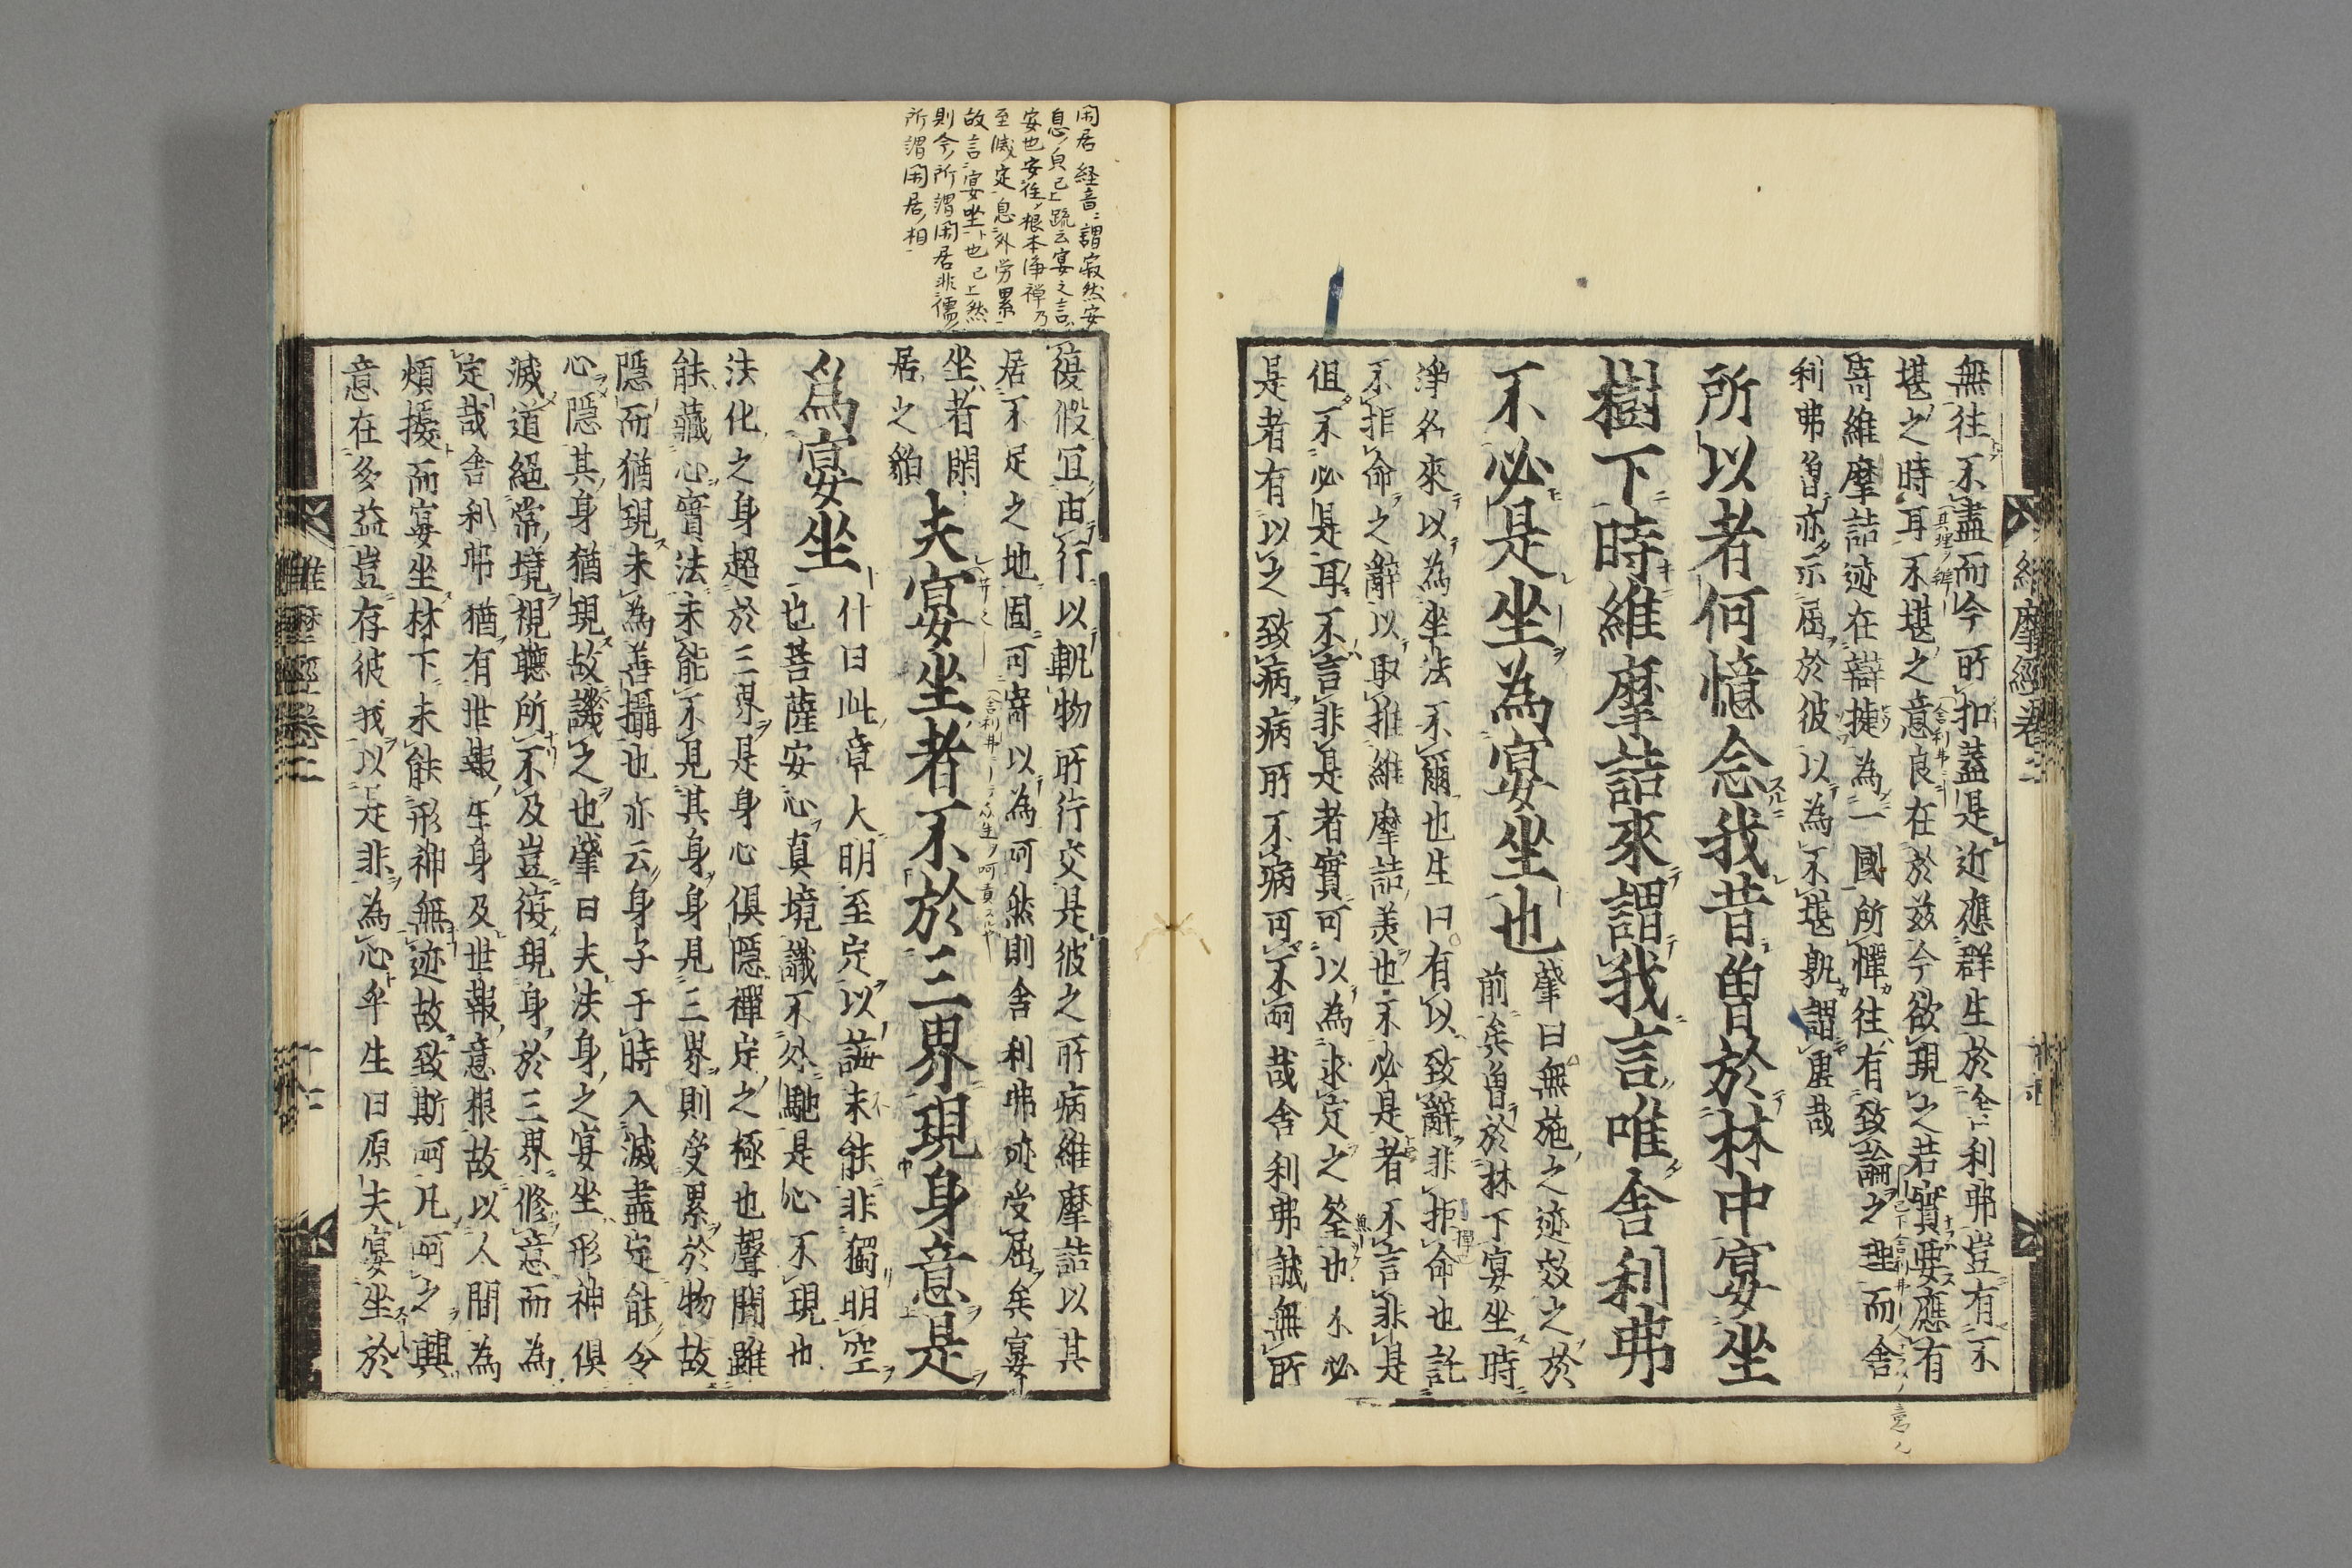 無往不盡而今所扣蓋是近應群生於舍利弗豈有不
堪之時耳不堪之意良在於茲今欲現之若實要應有
寄維摩詰迹在辯捷為一國所憚往有致論之理而舍
利弗曾亦示屈於彼以為不堪孰謂虛哉
所以者何憶念我昔曾於林中宴坐
樹下時維摩詰來謂我言唯舍利弗
不必是坐為宴坐也
肇曰無施之迹效之於
前矣曾於林下宴坐時
淨名來以為坐法不爾也生曰有以致辭非拒命也託
不拒命之辭以取推維摩詰美也不必是者不言非是
但不必是耳不言非是者實可以為求定之筌也不必
是者有以之致病病所不病可不呵哉舍利弗誠無所
維摩經卷二
閑居 経音ニ謂寂然安
息ノ皃已上疏云宴之言ハ
安也安住ノ根本淨禅乃
至滅定息外労累
故言宴坐也已上然
則今ノ所謂閑居非儒ノ
所謂閑居ノ相
復假宜由行以軌物所行交是彼之所病維摩詰以其
居不足之地固可寄以為呵然則舍利弗迹受屈矣宴
坐者閑
居之貌
夫宴坐者不於三界現身意是
為宴坐
什曰此章大明至定以誨未能非獨明空
也菩薩安心真境識不外馳是心不現也
法化之身超於三界是身心俱隱禪定之極也聲聞雖
能藏心實法未能不見其身身見三界則受累於物故
隱而猶現未為善攝也亦云身子于時入滅盡定能令
心隱其身猶現故譏之也肇曰夫法身之宴坐形神俱
滅道絕常境視聽所不及豈復現身於三界修意而為
定哉舍利弗猶有世報生身及世報意根故以人間為
煩擾而宴坐林下未能形神無迹故致斯呵凡呵之興
意在多益豈存彼我以是非為心乎生曰原夫宴坐於
維摩經卷二